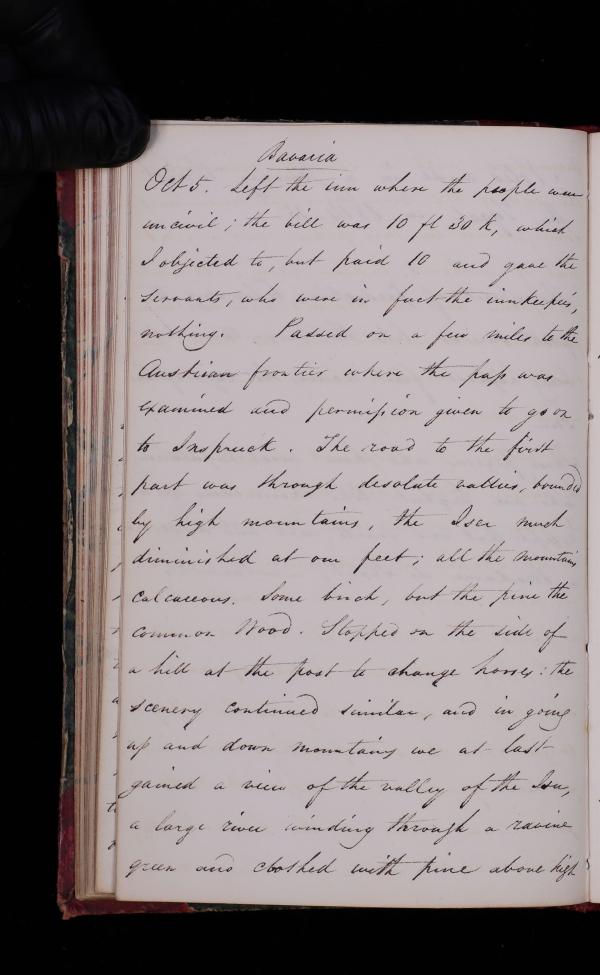 Bavaria
Oct 5. Left the inn where the people were
uncivil; the bill was 10 fl 30 k, which
I objected to, but paid 10 and gave the
servants, who were in fact the innkeepers,
nothing. Passed on a few miles to the
Austrian frontier where the pass was
examined and permission given to go on
to Inspruck. The road to the first
part was through desolate vallies, bounded
by high mountains, the Iser much
diminished at our feet; all the mountains
calcareous. Some birch, but the pine the
common Wood. Stopped on the side of
a hill at the post to change horses: the
scenery continued similar, and in going
up and down mountains we at last
gained a view of the valley of the Inn,
a large river winding through a ravine
green and clothed with pine above high